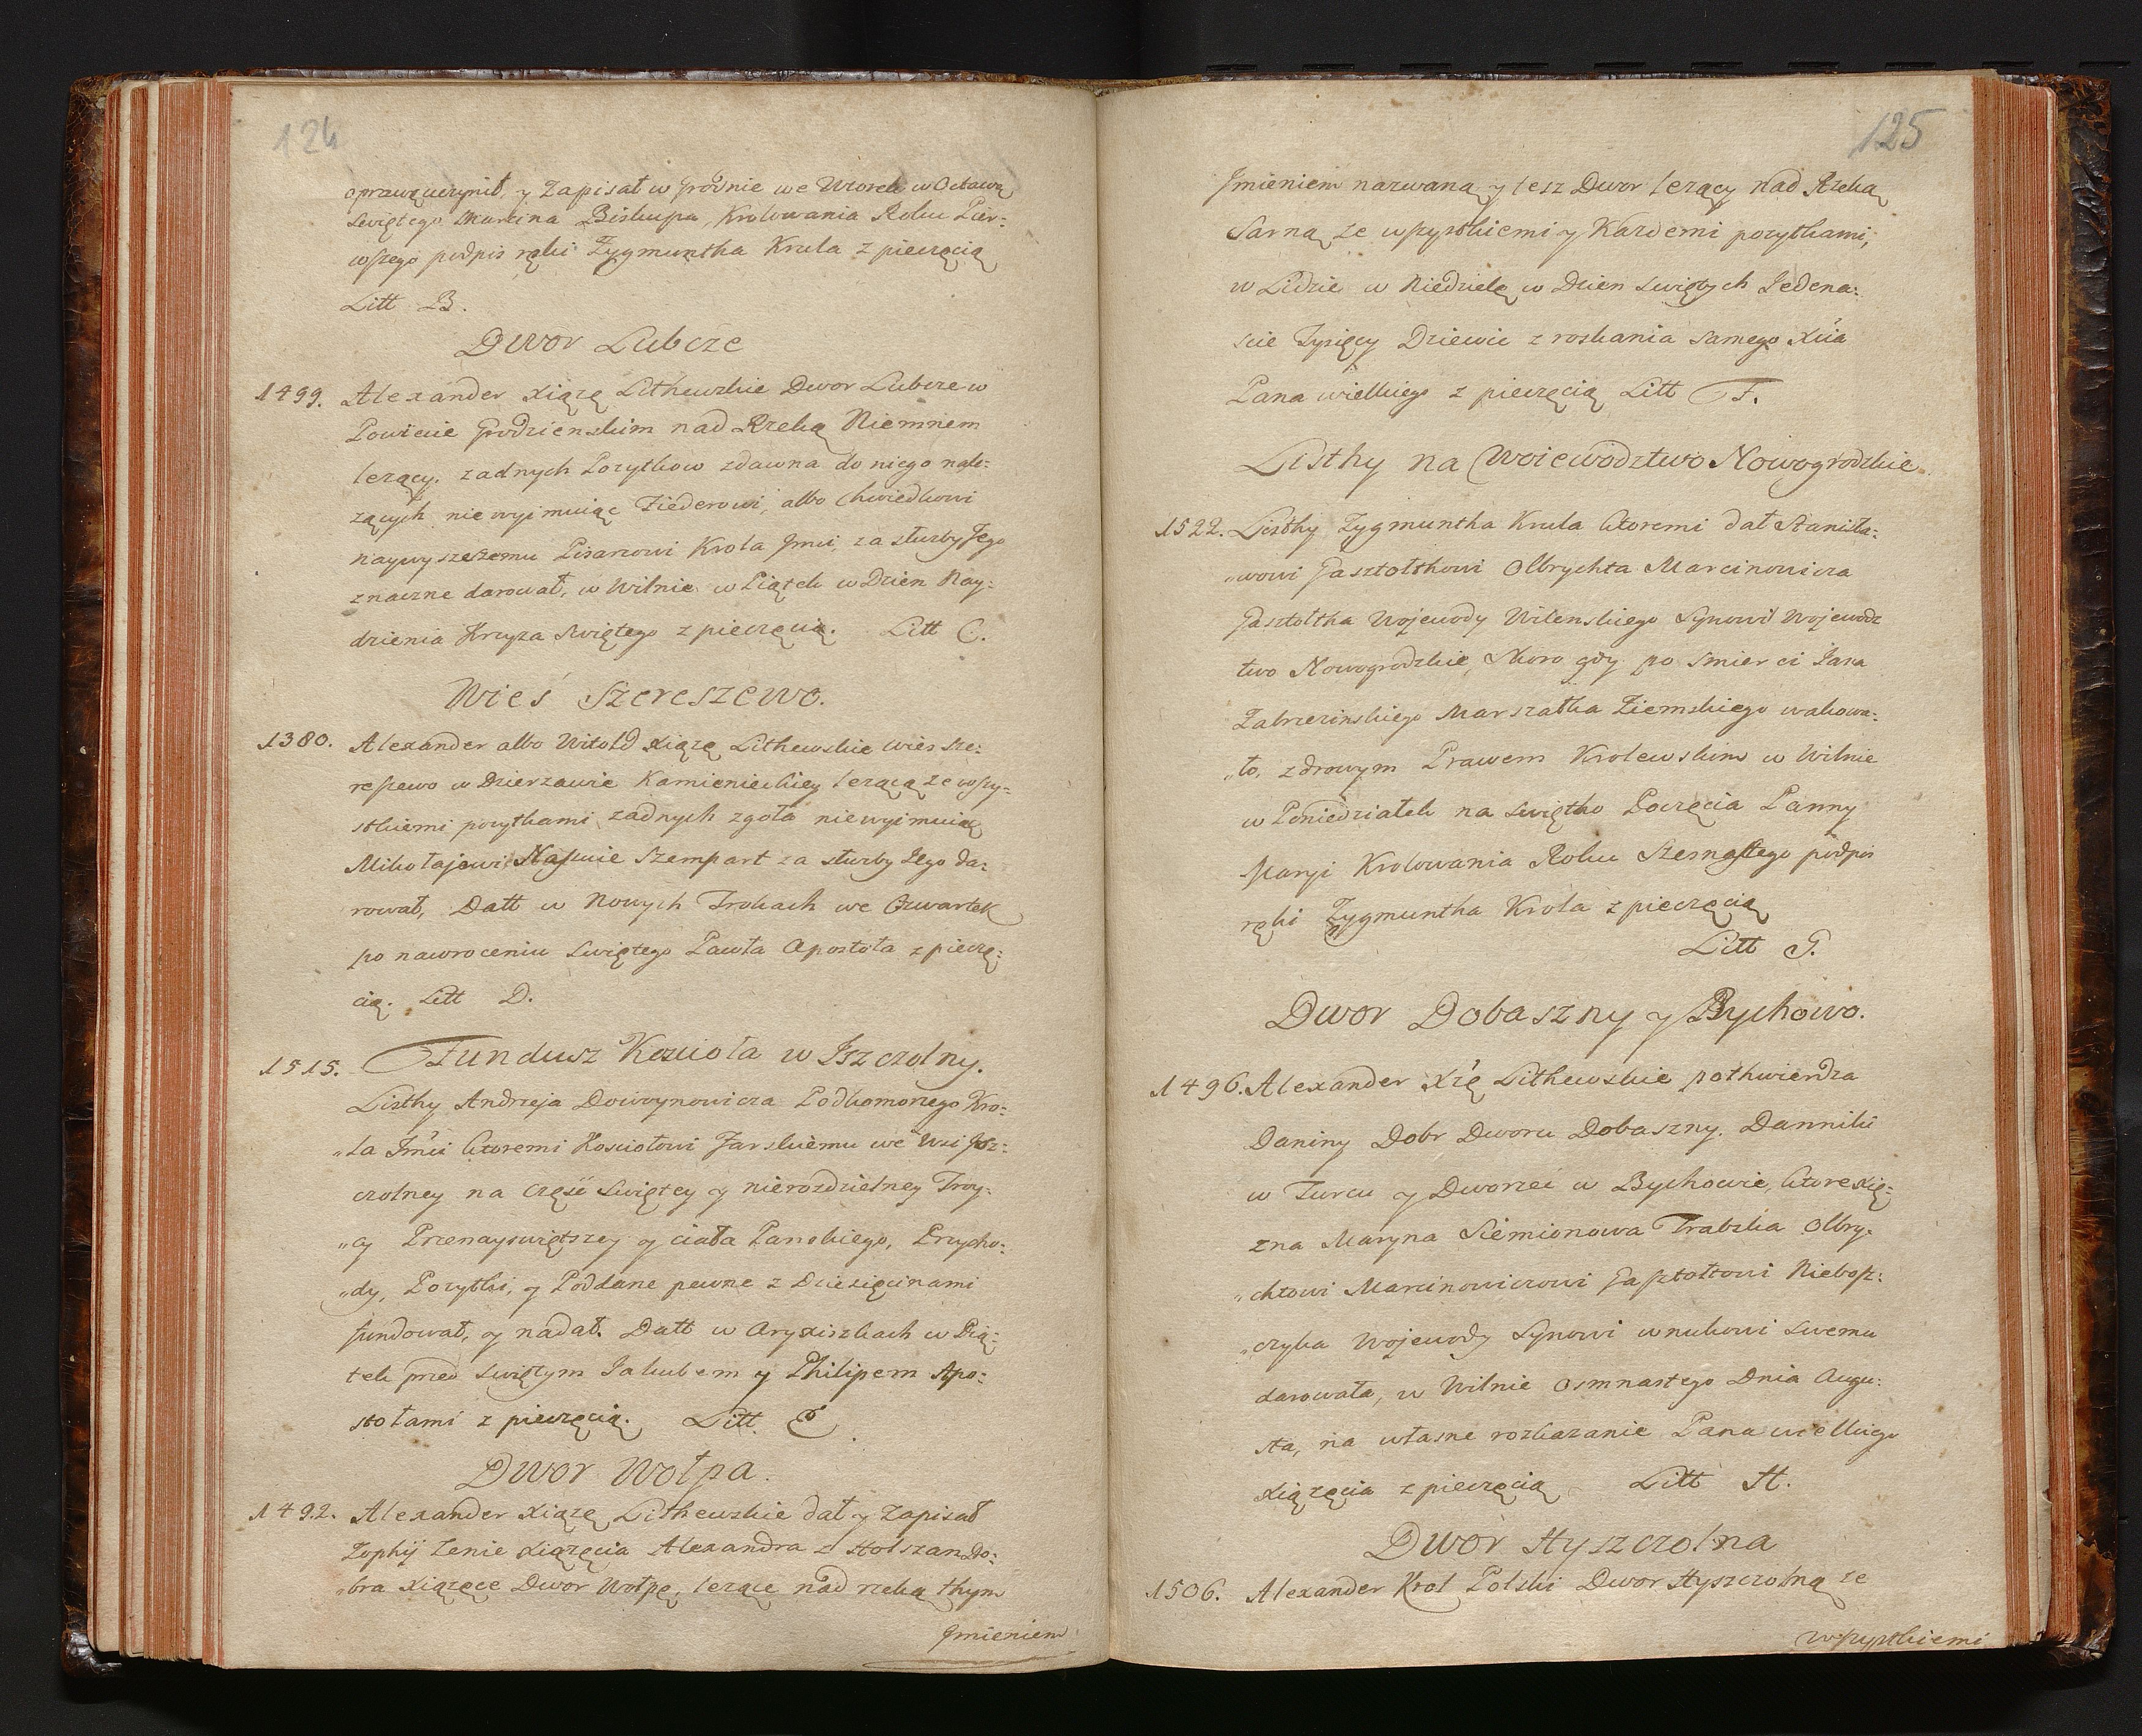 124
oprawę uczynił, y Zapisał w Grodnie we Wtorek w Octawę
Swiętego Marcina Biskupa, Krolowania Roku Pier=
wszego podpis ręki Zygmuntha Krula z pieczęcią
Litt B.
Dwor Lubcze
1499. Alexander xiąze Lithewskie Dwor Lubcze w
Powiecie Grodzienskim nad Rzeką Niemnem
lezący, zadnych Pozytkow zdawna do niego nale=
zących niewyimuiąc Fiederowi, albo Chwiedkowi
naywyszeszemu Pisarzowi Krola Jmci, za słuzby Jego
znaczne darował, w Wilnie w Piątek w Dzien Nay=
dzienia Krzyza Swiętego z pieczęcią. Litt C.
Wieś Szereszewo.
1380. Alexander albo Witold xiąze Lithewskie wies Sze=
reszewo w Dzierzawie Kamienieckiey lezącą ze wszy=
stkiemi pozytkami zadnych zgoła niewyimuiąc
Mikołajowi Naszucie Szempart za słuzby Jego da=
rował, Datt w Nowych Trokach we Czwartek
po nawroceniu Swiętego Pawła Apostoła z pieczę=
cią. Litt D.
1515. Fundusz Koscioła w Iszczolny.
Listhy Andrzeja Dowoynowicza Podkomorzego Kro=
"la Jmci ktoremi Kosciołowi Farskiemu we Wsi Jsz=
czolney na część Swiętey y nierozdzielney Troy=
"cy Przenayswiętszey y ciała Panskiego, Przycho=
"dy, Pozytki, y Poddane pewne z Dziesięcinami
fundował, y nadał. Datt w Aryxiszkach w Pią=
tek przed Swiętym Jakubem y Philipem Apo=
stołami z pieczęcią. Litt. E.
Dwor Wołpa.
1492. Alexander xiąze Lithewskie dał y Zapisał
Zophij Zenie xiązęcia Alexandra z Holszan Do=
"bra xiązęce Dwor Wołpę, lezące nad rzeką thym
Jmieniem
125
Jmieniem nazwaną y tesz Dwor lezący nad Rzeką
Sarną ze wszystkiemi y Kazdemi pozytkami,
w Lidzie w Niedzielę w Dzien Swiętych Jedena=
scie Tysięcy Dziewic z roskania Samego Xcia
Pana wielkiego z pieczęcią Litt F.
Listhy na Woiewodztwo Nowogrodzkie
1522. Listhy Zygmuntha Krula ktoremi dał Stanisła=
"wowi Gasztołthowi Olbrychta Marcinowicza
Gasztołtha Wojewody Wilenskiego Synowi Wojewodz
two Nowogrodzkie, Skoro gdy po Smierci Jana
Zabrzezinskiego Marszałka Ziemskiego wakowa=
"ło, zdrowym Prawem Krolewskim w Wilnie
w Poniedziałek na Swiętho Poczęcia Panny
Maryi Krolowania Roku Szesnastego podpis
ręki Zygmuntha Krola z pieczęcią
Litt G.
Dwor Dobaszny y Bychowo.
1496. Alexander Xżę Lithewskie pothwierdza
Daniny Dobr Dworu Dobaszny. Danniki
w Turcu y Dworzec w Bychowie, ktore xię=
zna Maryna Siemionowa Trabska Olbry=
"chtowi Marcinowiczowi Gasztołtowi Niebosz=
"czyka Wojewody Synowi wnukowi Swemu
darowała, w Wilnie Osmnastego Dnia Augu=
sta, na własne rozkazanie Pana wielkiego
xiązęcia z pieczęcią Litt H.
Dwor Hyszczolna
1506. Alexander Krol Polski Dwor Hyszczolną ze
wszystkiemi